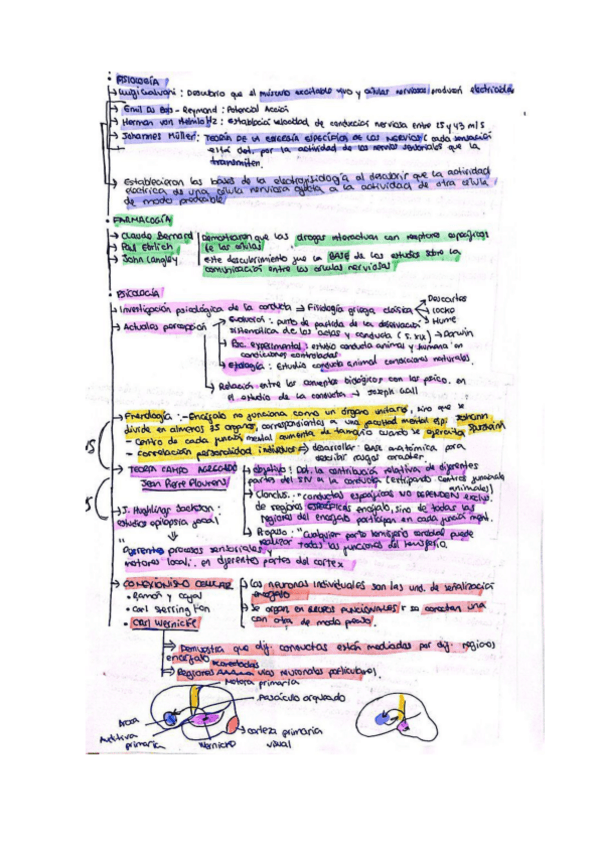 • FISIOLOGÍA
→ Luigi Galvani: Descubrio que el músculo excitable vivo y células nerviosas producen electricidad
→ Emil Du Bois-Reymond: Potencial Acción
→ Herman von Helmholtz: establecio velocidad de conducción nerviosa entre 25 y 43 m/s
→ Johannes Müller: TEORÍA DE LA ENERGÍA ESPECÍFICA DE LOS NERVIOS ( cada sensación
está det. por la actividad de los nervios sensoriales que la
transmiten.
→ Establecieron las bases de la electrofisiología al descubrir que la actividad
eléctrica de una célula nerviosa afecta a la actividad de otra célula
de modo predecible.
• FARMACOLOGÍA
→ Claudio Bernard Demostraron que las drogas interactuan con receptores específicos
→ Paul Ehrlich de las células
→ John Langley Este descubrimiento fue la BASE de los estudios sobre la
comunicación entre las células nerviosas
• PSICOLOGÍA
→ Investigación psicológica de la conducta → Filosofía griega clásica
Descartes
Locke
Hume
→ Actuales percepción
→ Evolución: punto de partida de la observación
sistemática de los actos y conducta (s. XIX) → Darwin
→ Psc. experimental: estudio conducta animal y humana en
condiciones controladas
→ Etología: Estudio conducta animal condiciones naturales.
→ Relación entre los conceptos biológicos con los psico. en
el estudio de la conducta → Joseph Gall
→ Frenología: - Encéfalo no funciona como un órgano unitario, sino que se
divide en almenos 35 órganos, correspondientes a una facultad mental esp.
- Centro de cada función mental aumenta de tamaño cuando se ejercita
- correlación personalidad individuos → desarrollar BASE anatómica para
describir rasgos caracter.
→ TEORÍA CAMPO AGREGADO
Jean Pierre Flourens
→ objetivo: Det. la contribución relativa de diferentes
partes del SN a la conducta (extirpando centros funcionales
animales)
→ Conclus.: "conductas específicas NO DEPENDEN exclus.
de regiones ESPECÍFICAS encéfalo, sino de todas las
regiones del encéfalo participan en cada función ment.
→ Propuso: "Cualquier parte hemisferio cerebral puede
realizar todas las funciones del hemisferio.
→ J. Hughlings Jackson:
estudios epilepsia focal
"
Diferentes procesos sensoriales y
motores local. en diferentes partes del cortex
→ CONEXIONISMO CELULAR
• Ramón y Cajal
• Carl Wernicke
→ Las neuronas individuales son las uni. de señalización
encéfalo
→ Se organ. en GRUPOS FUNCIONALES y se conectan una
con otra de modo preciso.
→ Demuestra que dif. conductas están mediadas por dif. regiones
encéfalo
→ Regiones conectadas vías neuronales particulares.
Motora primaria
Fascículo arqueado
Auditiva
primaria
Wernicke
corteza primaria
visual